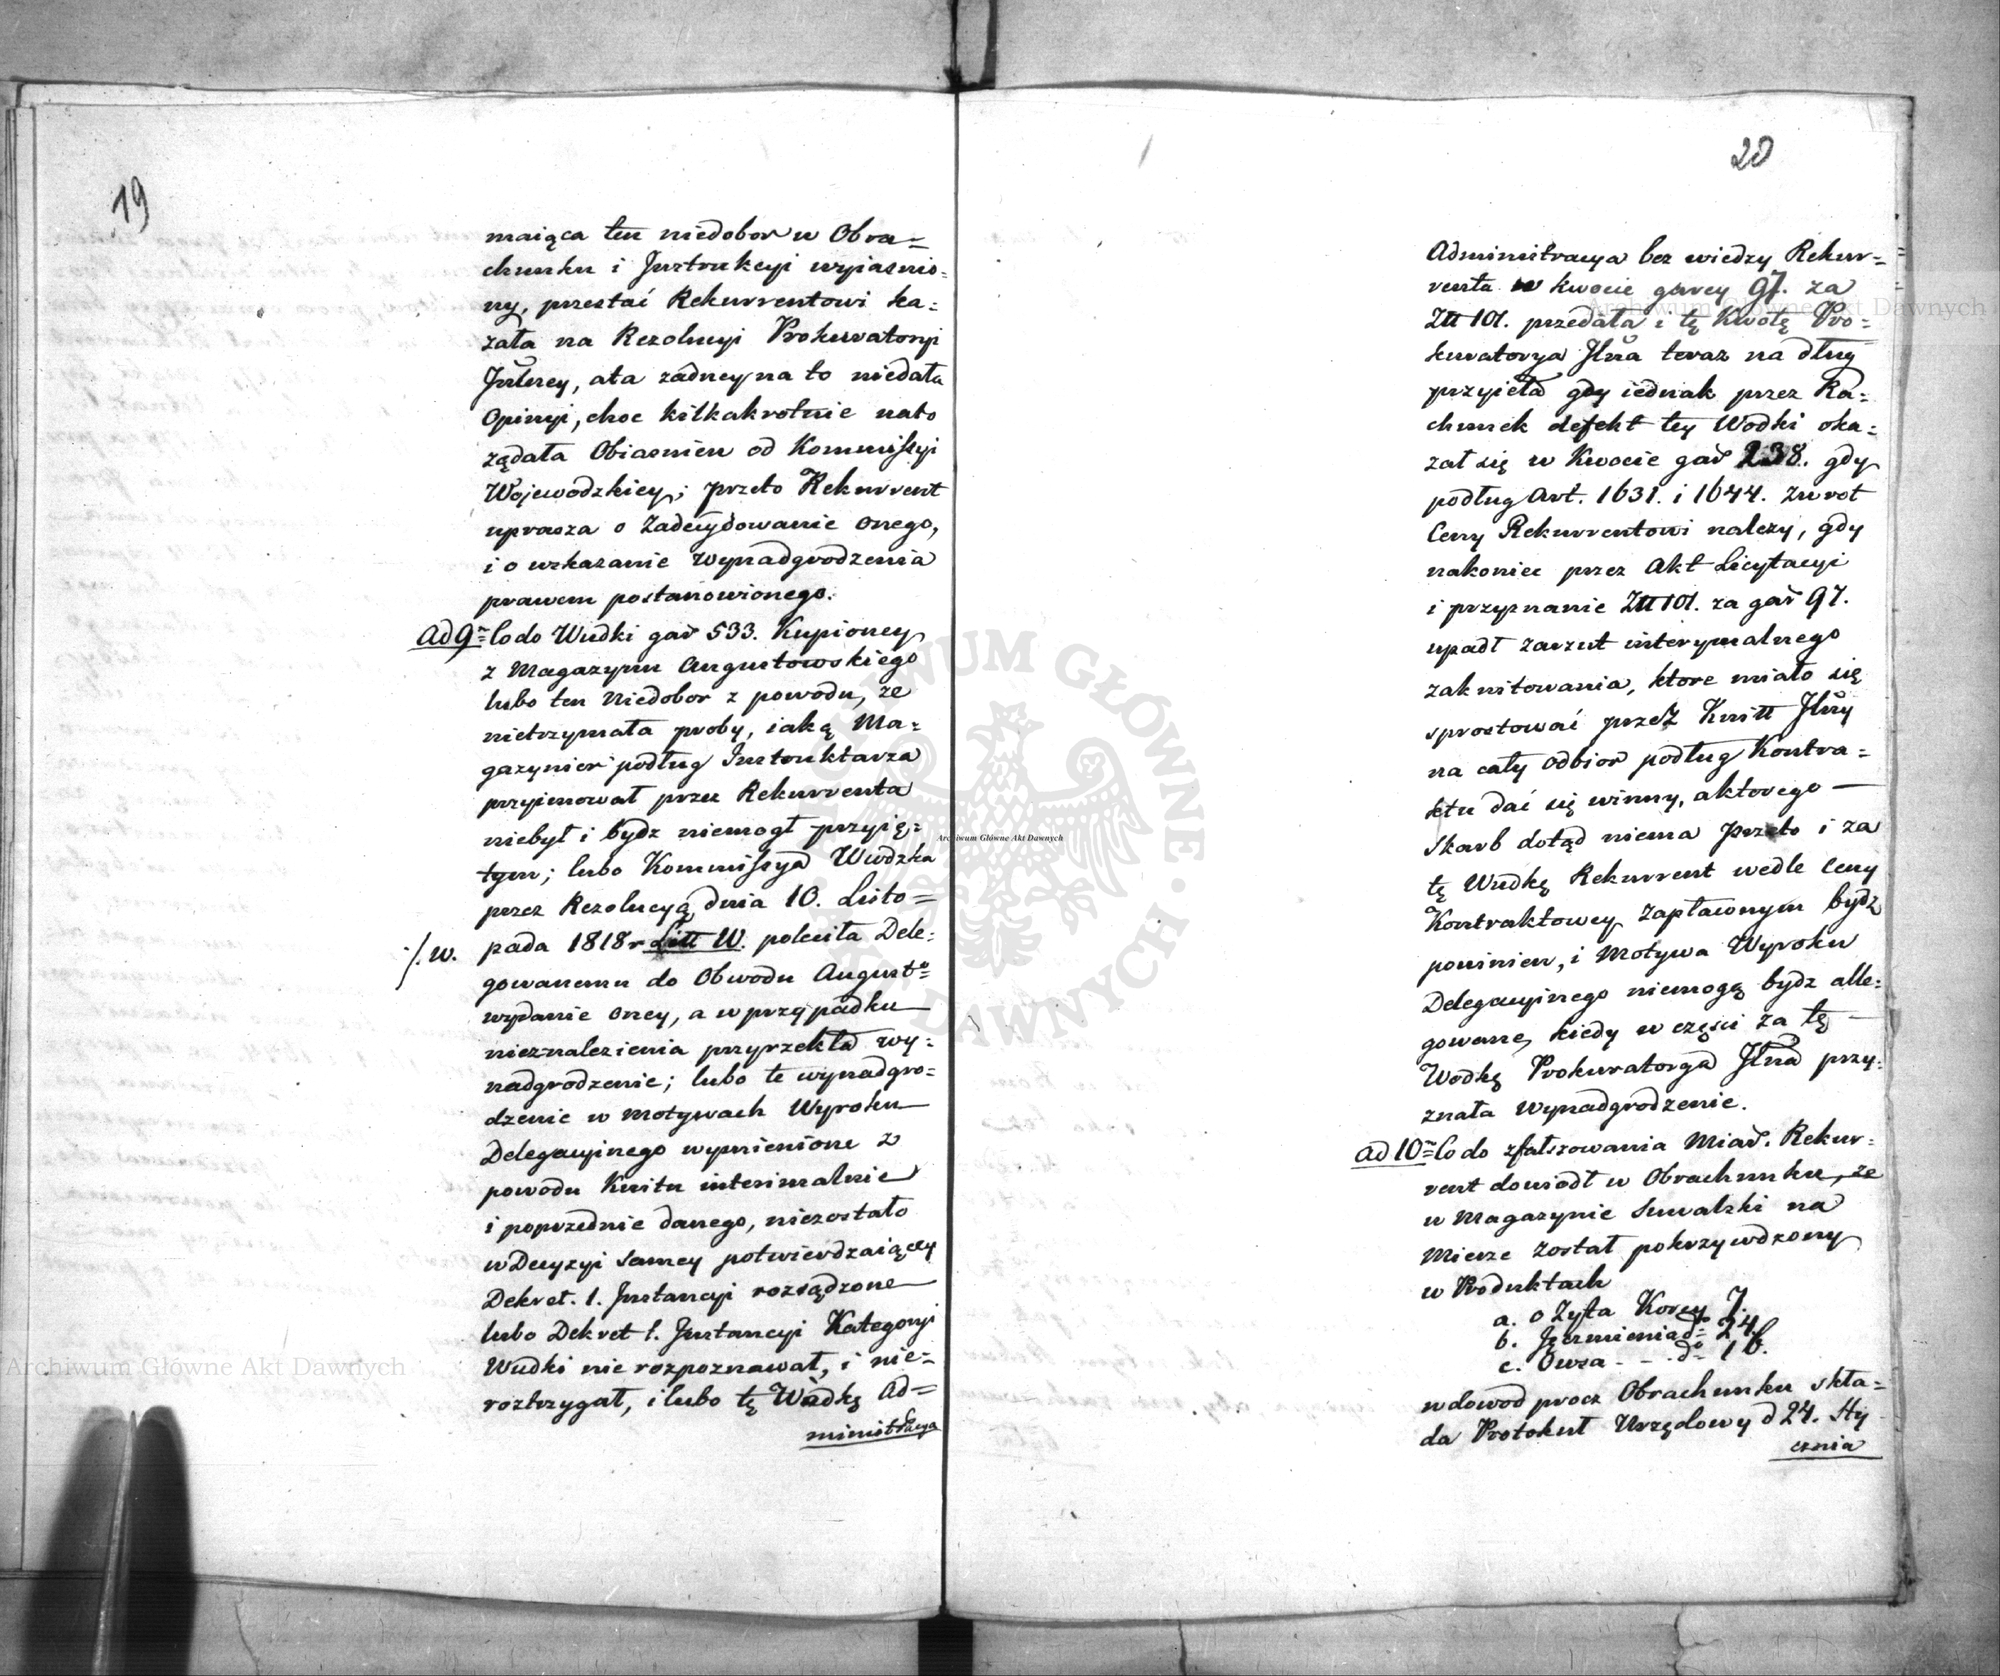 19
maiąca ten niedobor w Obra=
chunku i Instrukcyi wyiasnio=
ny, przestać Rekurrentowi ka=
zała na Rezolucyi Prokuratoryi
Jlney, ata żadney na to niedała
Opinyi, choc kilkakrotnie nato
żądała Obiasnien od Kommissyi
Wojewodzkiey; przeto Rekurrent
uprasza o Zadecydowanie onego,
i o wskazanie Wynadgrodzenia
prawem postanowionego.
Ad 9= Co do Wudki gar 533. Kupioney
z Magazynu Augustowskiego
lubo ten Niedobor z powodu, ze
nietrzymała proby, iaką Ma=
gazynier podług Instruktarza
przyimował przez Rekurrenta
niebył i bydz niemogł przyię=
tym; lubo Kommissya Wwdzka
przez Rezolucyą dnia 10. Listo=
·/. w. pada 1818 r Litt W. poleciła Dele=
gowanemu do Obwodu Augusto=
wydanie oney, a w przypadku
nieznalezienia przyrzekła wy=
nadgrodzenie; lubo te wynadgro=
dzenie w Motywach Wyroku
Delegacyinego wymienione z
powodu Kwitu interimalnie
i poprzednie danego, niezostało
w Decyzyi samey potwierdzaiącey
Dekret. 1. Instancyi rozsądzone
lubo Dekret 1. Instancyi Kategoryi
Wudki nie rozpoznawał, i nie=
roztrzygał, i lubo tę Wodkę Ad=
ministracya
20
Administracya bez wiedzy Rekur=
renta w kwocie garcy 97. za
Ztt 101. przedała i tę Kwotę Pro=
kuratorya Jlna teraz na dług
przyieła gdy iednak przez Ra=
chunek defekt tey Wodki oka=
zał się w Kwocie gar 238. gdy
podług Art. 1631. i 1644. zwrot
Ceny Rekurrentowi nalezy, gdy
nakoniec przez Akt Licytacyi
i przyznanie Ztt 101. za gar 97.
upadł zarzut interymalnego
zakwitowania, ktore miało się
sprostować przez Kwitt Jlny
na cały odbior podług Kontra=
ktu dać się winny, a ktorego —
Skarb dotąd niema przeto i za
tę Wudkę Rekurrent wedle Ceny
Kontraktowey Zapłaconym bydz
powinien, i Motywa Wyroku
Delegacyinego niemogą bydz alle=
gowane, kiedy w częsci za tę —
Wodkę Prokuratorya Jlna przy=
znała Wynadgrodzenie.
Ad 10= Co do zfałszowania Miar. Rekur=
rent dowiodł w Obrachunku, ze
w Magazynie Suwalski na
Mierze został pokrzywdzony
w Produktach
a. o Zyta Korcy 7.
b. Jęczmienia do 24.
c. Owsa - - do 16.
w dowod procz Obrachunku skła=
da Protokuł Urzędowy d 24. Sty
cznia
Archiwum Główne Akt Dawnych
Archiwum Główne Akt Dawnych
Archiwum Główne Akt Dawnych
ARCHIWUM GŁÓWNE AKT DAWNYCH